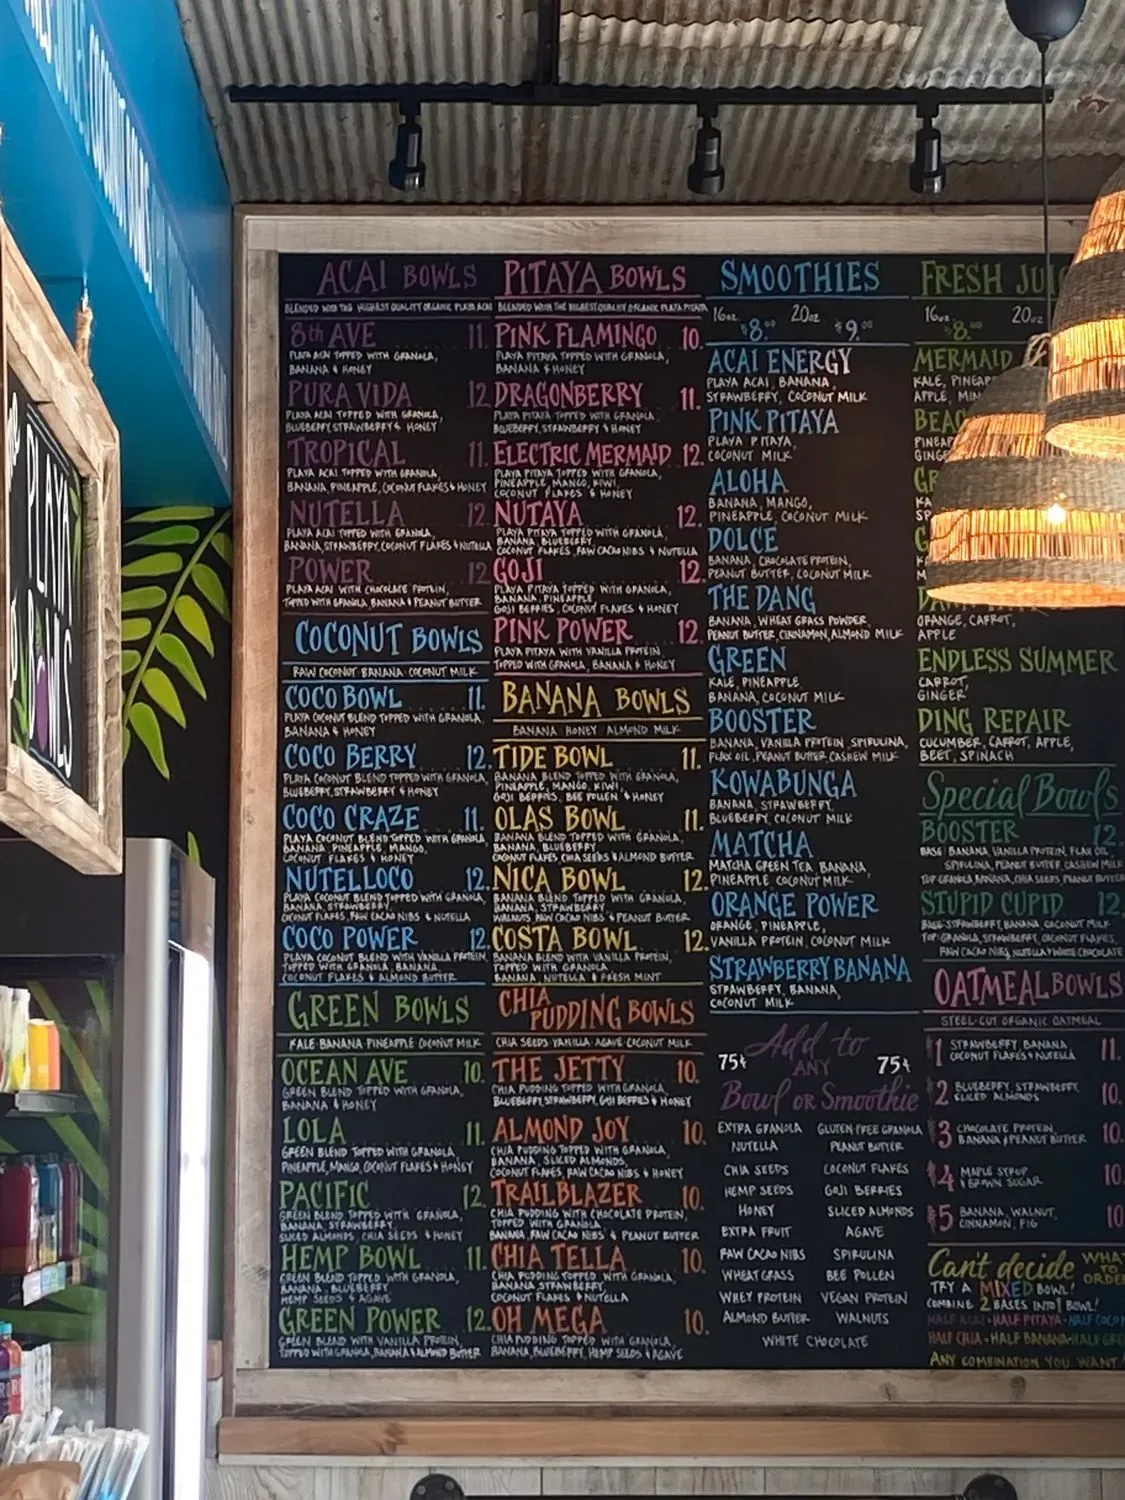 PLAYA
BOWLS
ACAI BOWLS
BLENDED WITH THE HIGHEST QUALITY ORGANIC PLAYA ACAI
8th AVE 11.
PLAYA ACAI TOPPED WITH GRANOLA,
BANANA & HONEY
PURA VIDA 12.
PLAYA ACAI TOPPED WITH GRANOLA,
BLUEBERRY, STRAWBERRY & HONEY
TROPICAL 11.
PLAYA ACAI TOPPED WITH GRANOLA,
BANANA, PINEAPPLE, COCONUT FLAKES & HONEY
NUTELLA 12.
PLAYA ACAI TOPPED WITH GRANOLA,
BANANA, STRAWBERRY, COCONUT FLAKES & NUTELLA
POWER 12.
PLAYA ACAI WITH CHOCOLATE PROTEIN,
TOPPED WITH GRANOLA BANANA & PEANUT BUTTER
COCONUT BOWLS
RAW COCONUT BANANA COCONUT MILK
COCO BOWL 11.
PLAYA COCONUT BLEND TOPPED WITH GRANOLA,
BANANA & HONEY
COCO BERRY 12.
PLAYA COCONUT BLEND TOPPED WITH GRANOLA,
BLUEBERRY, STRAWBERRY & HONEY
COCO CRAZE 11.
PLAYA COCONUT BLEND TOPPED WITH GRANOLA,
BANANA, PINEAPPLE, MANGO,
COCONUT FLAKES & HONEY
NUTELLOCO 12.
PLAYA COCONUT BLEND TOPPED WITH GRANOLA,
BANANA, STRAWBERRY,
COCONUT FLAKES, RAW CACAO NIBS & NUTELLA
COCO POWER 12.
PLAYA COCONUT BLEND WITH VANILLA PROTEIN,
TOPPED WITH GRANOLA, BANANA,
COCONUT FLAKES & ALMOND BUTTER
GREEN BOWLS
KALE BANANA PINEAPPLE COCONUT MILK
OCEAN AVE 10.
GREEN BLEND TOPPED WITH GRANOLA,
BANANA & HONEY
LOLA 11.
GREEN BLEND TOPPED WITH GRANOLA,
PINEAPPLE, MANGO, COCONUT FLAKES & HONEY
PACIFIC 12.
GREEN BLEND TOPPED WITH GRANOLA,
BANANA, STRAWBERRY,
SLICED ALMONDS, CHIA SEEDS & HONEY
HEMP BOWL 11.
GREEN BLEND TOPPED WITH GRANOLA,
BANANA, BLUEBERRY,
HEMP SEEDS & AGAVE
GREEN POWER 12.
GREEN BLEND WITH VANILLA PROTEIN,
TOPPED WITH GRANOLA, BANANA & ALMOND BUTTER
PITAYA BOWLS
BLENDED WITH THE HIGHEST QUALITY ORGANIC PLAYA PITAYA
PINK FLAMINGO 10.
PLAYA PITAYA TOPPED WITH GRANOLA,
BANANA & HONEY
DRAGONBERRY 11.
PLAYA PITAYA TOPPED WITH GRANOLA,
BLUEBERRY, STRAWBERRY & HONEY
ELECTRIC MERMAID 12.
PLAYA PITAYA TOPPED WITH GRANOLA,
PINEAPPLE, MANGO, KIWI,
COCONUT FLAKES & HONEY
NUTAYA 12.
PLAYA PITAYA TOPPED WITH GRANOLA,
BANANA, BLUEBERRY,
COCONUT FLAKES, RAW CACAO NIBS & NUTELLA
GOJI 12.
PLAYA PITAYA TOPPED WITH GRANOLA,
BANANA, PINEAPPLE,
GOJI BERRIES, COCONUT FLAKES & HONEY
PINK POWER 12.
PLAYA PITAYA WITH VANILLA PROTEIN,
TOPPED WITH GRANOLA, BANANA & HONEY
BANANA BOWLS
BANANA HONEY ALMOND MILK
TIDE BOWL 11.
BANANA BLEND TOPPED WITH GRANOLA,
PINEAPPLE, MANGO, KIWI,
GOJI BERRIES, BEE POLLEN & HONEY
OLAS BOWL 11.
BANANA BLEND TOPPED WITH GRANOLA,
BANANA, BLUEBERRY,
COCONUT FLAKES CHIA SEEDS & ALMOND BUTTER
NICA BOWL 12.
BANANA BLEND TOPPED WITH GRANOLA,
BANANA, STRAWBERRY,
WALNUTS RAW CACAO NIBS & PEANUT BUTTER
COSTA BOWL 12.
BANANA BLEND WITH VANILLA PROTEIN,
TOPPED WITH GRANOLA,
BANANA, NUTELLA & FRESH MINT
CHIA PUDDING BOWLS
CHIA SEEDS VANILLA AGAVE COCONUT MILK
THE JETTY 10.
CHIA PUDDING TOPPED WITH GRANOLA,
BLUEBERRY, STRAWBERRY, GOJI BERRIES & HONEY
ALMOND JOY 10.
CHIA PUDDING TOPPED WITH GRANOLA,
BANANA, SLICED ALMONDS,
COCONUT FLAKES, RAW CACAO NIBS & HONEY
TRAILBLAZER 10.
CHIA PUDDING WITH CHOCOLATE PROTEIN,
TOPPED WITH GRANOLA
BANANA, RAW CACAO NIBS & PEANUT BUTTER
CHIA TELLA 10.
CHIA PUDDING TOPPED WITH GRANOLA,
BANANA, STRAWBERRY,
COCONUT FLAKES & NUTELLA
OH MEGA 10.
CHIA PUDDING TOPPED WITH GRANOLA,
BANANA, BLUEBERRY, HEMP SEEDS & AGAVE
SMOOTHIES
16oz. 20oz
$8.00 $9.00
ACAI ENERGY
PLAYA ACAI, BANANA,
STRAWBERRY, COCONUT MILK
PINK PITAYA
PLAYA PITAYA,
COCONUT MILK
ALOHA
BANANA, MANGO,
PINEAPPLE, COCONUT MILK
DOLCE
BANANA, CHOCOLATE PROTEIN,
PEANUT BUTTER, COCONUT MILK
THE DANG
BANANA, WHEAT GRASS POWDER,
PEANUT BUTTER, CINNAMON, ALMOND MILK
GREEN
KALE, PINEAPPLE,
BANANA, COCONUT MILK
BOOSTER
BANANA, VANILLA PROTEIN, SPIRULINA,
FLAX OIL, PEANUT BUTTER CASHEW MILK
KOWABUNGA
BANANA, STRAWBERRY,
BLUEBERRY, COCONUT MILK
MATCHA
MATCHA GREEN TEA, BANANA,
PINEAPPLE, COCONUT MILK
ORANGE POWER
ORANGE, PINEAPPLE,
VANILLA PROTEIN, COCONUT MILK
STRAWBERRY BANANA
STRAWBERRY, BANANA,
COCONUT MILK
Add to
75¢ ANY 75¢
Bowl OR Smoothie
EXTRA GRANOLA GLUTEN FREE GRANOLA
NUTELLA PEANUT BUTTER
CHIA SEEDS COCONUT FLAKES
HEMP SEEDS GOJI BERRIES
HONEY SLICED ALMONDS
EXTRA FRUIT AGAVE
RAW CACAO NIBS SPIRULINA
WHEATGRASS BEE POLLEN
WHEY PROTEIN VEGAN PROTEIN
ALMOND BUTTER WALNUTS
WHITE CHOCOLATE
FRESH JUIC
16oz. 20oz
$8.00
MERMAID
KALE, PINEAP
APPLE, MIN
BEAC
PINEAP
GINGE
GR
KA
SP
ORANGE, CARROT,
APPLE
ENDLESS SUMMER
CARROT,
GINGER
DING REPAIR
CUCUMBER, CARROT, APPLE,
BEET, SPINACH
Special Bowls
BOOSTER 12.
BASE: BANANA, VANILLA PROTEIN, FLAX OIL
SPIRULINA, PEANUT BUTTER CASHEW MILK
TOP: GRANOLA, BANANA, CHIA SEEDS, PEANUT BUTTER
STUPID CUPID 12.
BASE: STRAWBERRY, BANANA COCONUT MILK
TOP: GRANOLA, STRAWBERRY, COCONUT FLAKES,
RAW CACAO NIBS, NUTELLA & WHITE CHOCOLATE
OATMEAL BOWLS
STEEL-CUT ORGANIC OATMEAL
#1 STRAWBERRY, BANANA, 11.
COCONUT FLAKES & NUTELLA
#2 BLUEBERRY, STRAWBERRY, 10.
SLICED ALMONDS
#3 CHOCOLATE PROTEIN, 10.
BANANA & PEANUT BUTTER
#4 MAPLE SYRUP 10.
& BROWN SUGAR
#5 BANANA, WALNUT, 10
CINNAMON, FIG
Can't decide WHAT
TO
ORDER
TRY A MIXED BOWL!
COMBINE 2 BASES INTO 1 BOWL!
HALF ACAI • HALF PITAYA • HALF COCO
HALF CHIA • HALF BANANA • HALF GREE
ANY COMBINATION YOU WANT